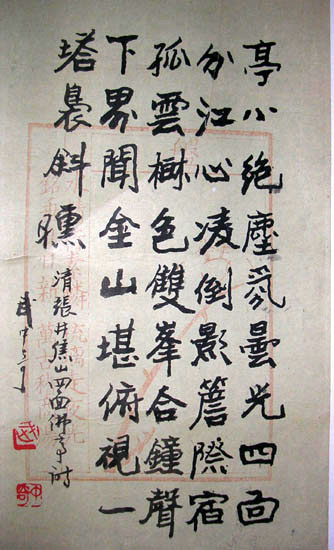 亭小絶塵氛曇光四面
分江心凌倒影簷際宿
孤雲樹色雙峯合鐘聲
下界聞金山堪俯視一
塔裊斜曛
清張井焦山四面佛亭詩
武中奇